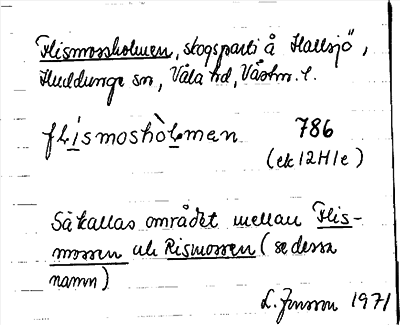 Flismossholmen, skogsparti å Hallsjö,
Huddunge sn, Våla hd, Västm. l.
flismoshòlmen 786
(ek 12H1e)
Så kallas området mellan Flis-
mossen och Rismossen (se dessa
namn)
L. Jonsson 1971